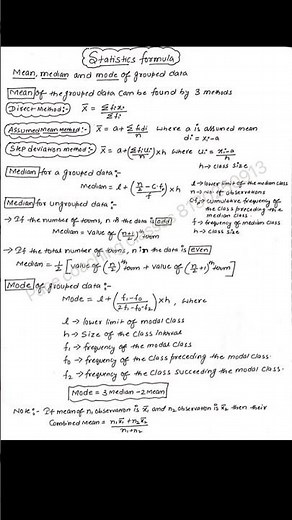 Statistics formula
Mean, median and mode of grouped data
Mean of the grouped data can be found by 3 methods
Direct Method:- x̄ = Σfixi / Σfi
Assumed Mean Method:- x̄ = a + Σfidi / n where a is assumed mean
di = xi - a
Step deviation method:- x̄ = a + (Σfiui / n) × h where ui = (xi - a) / h
h → class size
Median for a grouped data:-
Median = l + ((n/2 - C.f) / f) × h
l → lower limit of the median class
n → no. of observations
Cf → cumulative frequency of
the class preceding the
median class
f → frequency of median class
h → class size
Median for ungrouped data:-
→ If the number of terms, n in the data is odd
Median = value of ((n+1)/2)th term
→ If the total number of terms, n in the data is EVEN
Median = 1/2 [value of (n/2)th term + value of (n/2 + 1)th term]
Mode of grouped data:-
Mode = l + ((f1 - f0) / (2f1 - f0 - f2)) × h, where
l → lower limit of modal class
h → size of the class interval
f1 → frequency of the modal class
f0 → frequency of the class preceding the modal class.
f2 → frequency of the class succeeding the modal class.
Mode = 3 Median - 2 Mean
Note:- If mean of n1 observation is x̄1 and n2 observation is x̄2 then their
Combined Mean = (n1x̄1 + n2x̄2) / (n1 + n2)